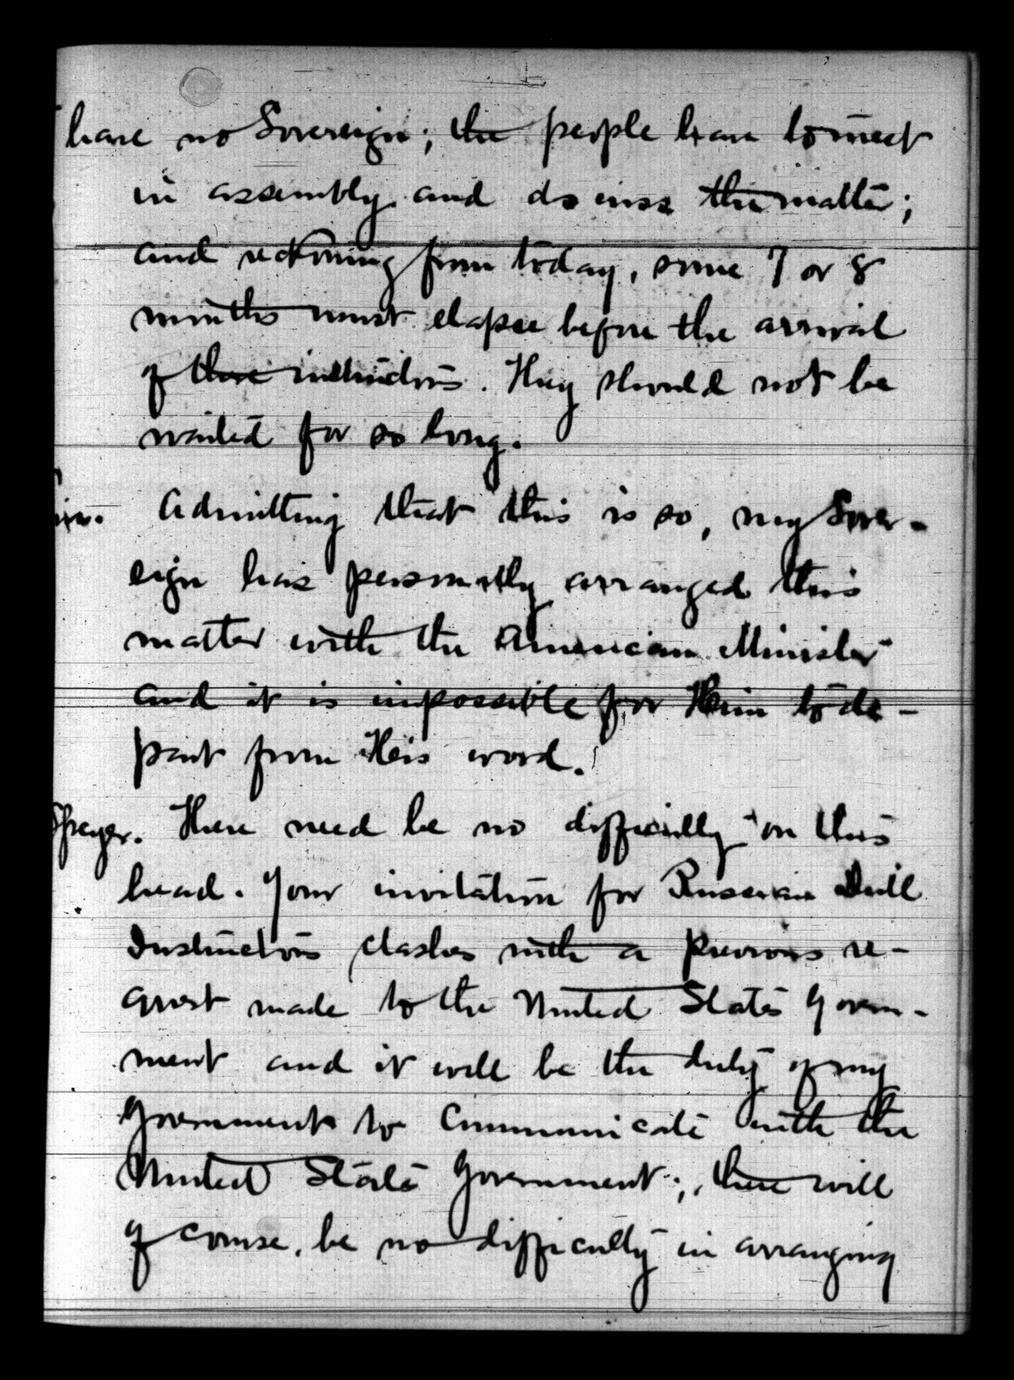 have no Sovereign; the people have to meet
in assembly and discuss the matter;
and reckoning from today, some 7 or 8
months must elapse before the arrival
of these instructors. They should not be
waited for so long.
Admitting that this is so, my Sover-
eign has personally arranged this
matter with the American Minister
and it is impossible for Him to de-
part from His word.
Speyer. There need be no difficulty on this
head. Your invitation for Russian Drill
Instructors clashes with a previous re-
quest made to the United States Govern-
ment and it will be the duty of my
Government to communicate with the
United States Government; there will
of course, be no difficulty in arranging